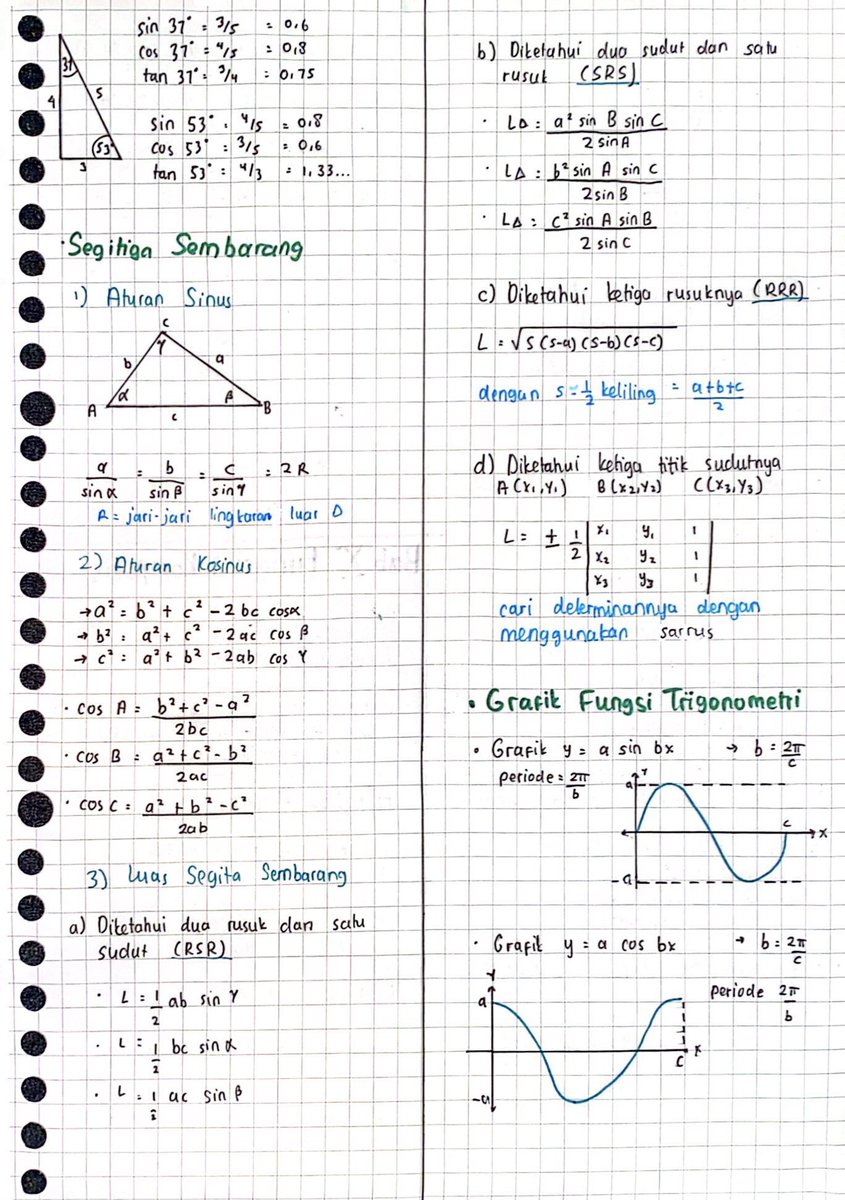 sin 37° = 3/5 = 0,6
cos 37° = 4/5 = 0,8
tan 37° = 3/4 = 0,75
37
4
5
53°
3
sin 53° = 4/5 = 0,8
cos 53° = 3/5 = 0,6
tan 53° = 4/3 = 1,33...
• Segitiga Sembarang
1) Aturan Sinus
C
γ
b
a
α
β
A
B
c
a/sin α = b/sin β = c/sin γ = 2R
R = jari-jari lingkaran luar Δ
2) Aturan Kosinus
→ a² = b² + c² - 2bc cos α
→ b² = a² + c² - 2ac cos β
→ c² = a² + b² - 2ab cos γ
• cos A = b² + c² - a² / 2bc
• cos B = a² + c² - b² / 2ac
• cos C = a² + b² - c² / 2ab
3) Luas Segita Sembarang
a) Diketahui dua rusuk dan satu
sudut (RSR)
• L = 1/2 ab sin γ
• L = 1/2 bc sin α
• L = 1/2 ac sin β
b) Diketahui dua sudut dan satu
rusuk (SRS)
• LΔ = a² sin B sin C / 2 sin A
• LΔ = b² sin A sin C / 2 sin B
• LΔ = c² sin A sin B / 2 sin C
c) Diketahui ketiga rusuknya (RRR)
L = √S(s-a)(s-b)(s-c)
dengan s = 1/2 keliling = a+b+c / 2
d) Diketahui ketiga titik sudutnya
A(x₁,y₁) B(x₂,y₂) C(x₃,y₃)
L = ± 1/2 | x₁ y₁ 1 |
| x₂ y₂ 1 |
| x₃ y₃ 1 |
cari determinannya dengan
menggunakan sarrus
• Grafik Fungsi Trigonometri
• Grafik y = a sin bx → b = 2π/c
periode = 2π/b
Y
a
c
X
-a
• Grafik y = a cos bx → b = 2π/c
Y
periode 2π/b
a
c
X
-a